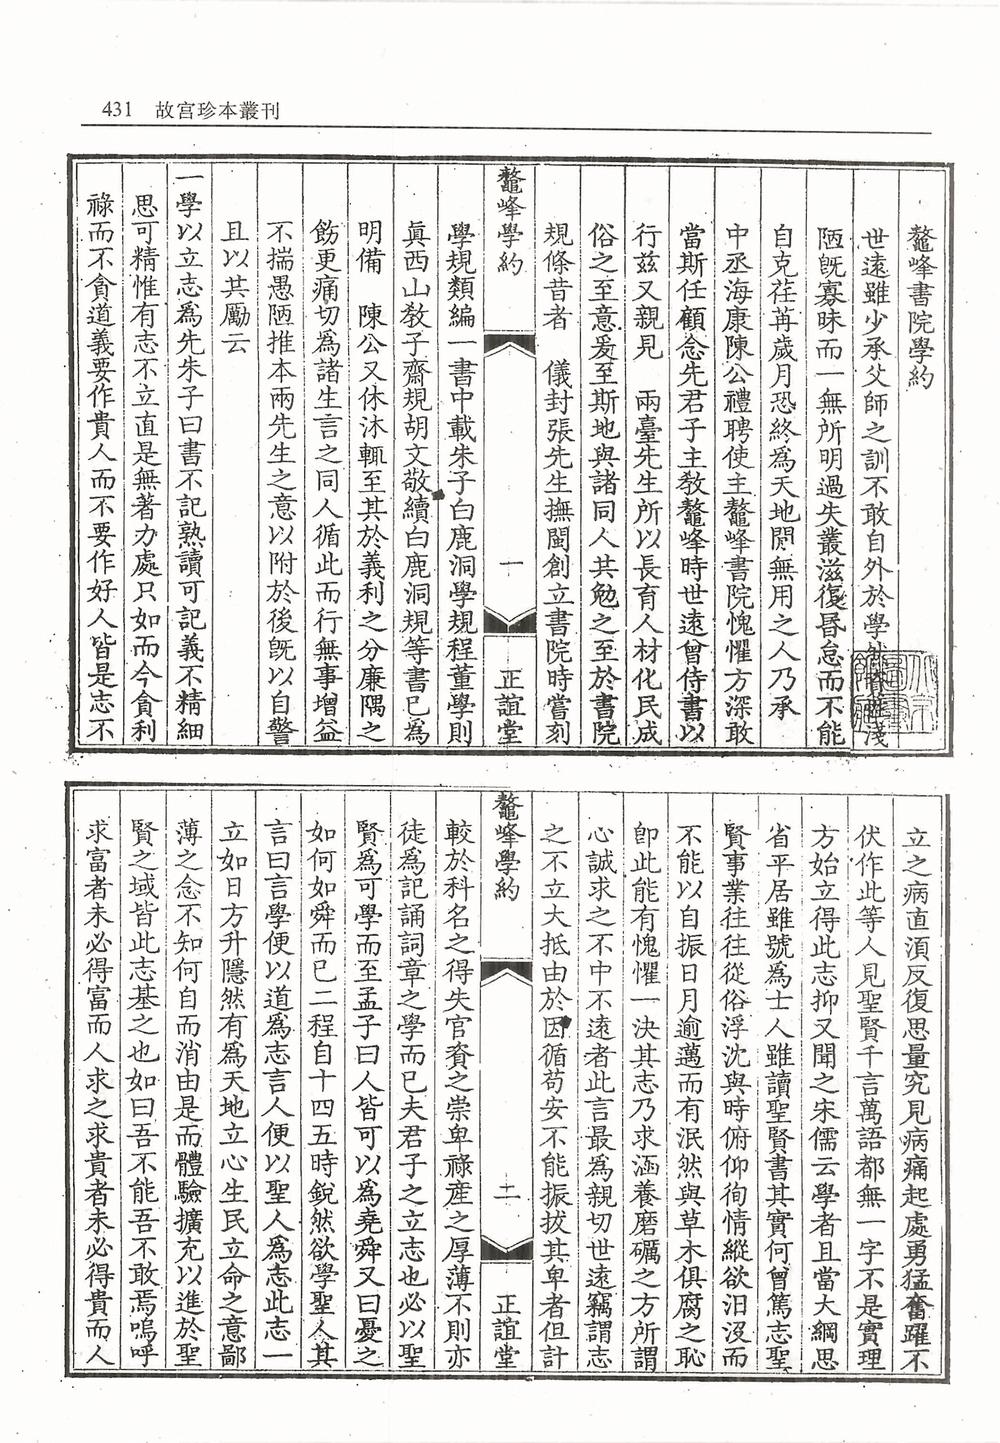 431 故宮珍本叢刊
鼇峰書院學約
世遠雖少承父師之訓不敢自外於學然資性淺
陋旣寡昧而一無所明過失叢滋復昬怠而不能
自克荏苒歲月恐終為天地閒無用之人乃承
中丞海康陳公禮聘使主鼇峰書院愧懼方深敢
當斯任顧念先君子主敎鼇峰時世遠曾侍書以
行茲又親見 兩臺先生所以長育人材化民成
俗之至意爰至斯地與諸同人共勉之至於書院
規條昔者 儀封張先生撫閩創立書院時嘗刻
鼇峰學約 一 正誼堂
學規類編一書中載朱子白鹿洞學規程董學則
眞西山敎子齋規胡文敬續白鹿洞規等書已為
明備 陳公又休沐輒至其於義利之分廉隅之
飭更痛切爲諸生言之同人循此而行無事增益
不揣愚陋推本兩先生之意以附於後旣以自警
且以其勵云
一學以立志爲先朱子曰書不記熟讀可記義不精細
思可精惟有志不立直是無著力處只如而今貪利
祿而不貪道義要作貴人而不要作好人皆是志不
立之病直湏反復思量究見病痛起處勇猛奮躍不
伏作此等人見聖賢千言萬語都無一字不是實理
方始立得此志抑又聞之宋儒云學者且當大綱思
省平居雖號為士人雖讀聖賢書其實何曾篤志聖
賢事業往往從俗浮沈與時俯仰徇情縱欲汨沒而
不能以自振日月逾邁而有泯然與草木俱腐之恥
卽此能有愧懼一決其志乃求涵養磨礪之方所謂
心誠求之不中不遠者此言最為親切世遠竊謂志
之不立大抵由於因循苟安不能振拔其卑者但計
鼇峰學約 二 正誼堂
較於科名之得失官資之崇卑祿產之厚薄不則亦
徒爲記誦詞章之學而已夫君子之立志也必以聖
賢爲可學而至孟子曰人皆可以為堯舜又曰憂之
如何如舜而已二程自十四五時銳然欲學聖人其
言曰言學便以道爲志言人便以聖人爲志此志一
立如日方升隱然有爲天地立心生民立命之意鄙
薄之念不知何自而消由是而體驗擴充以進於聖
賢之域皆此志基之也如曰吾不能吾不敢焉嗚呼
求富者未必得富而人求之求貴者未必得貴而人